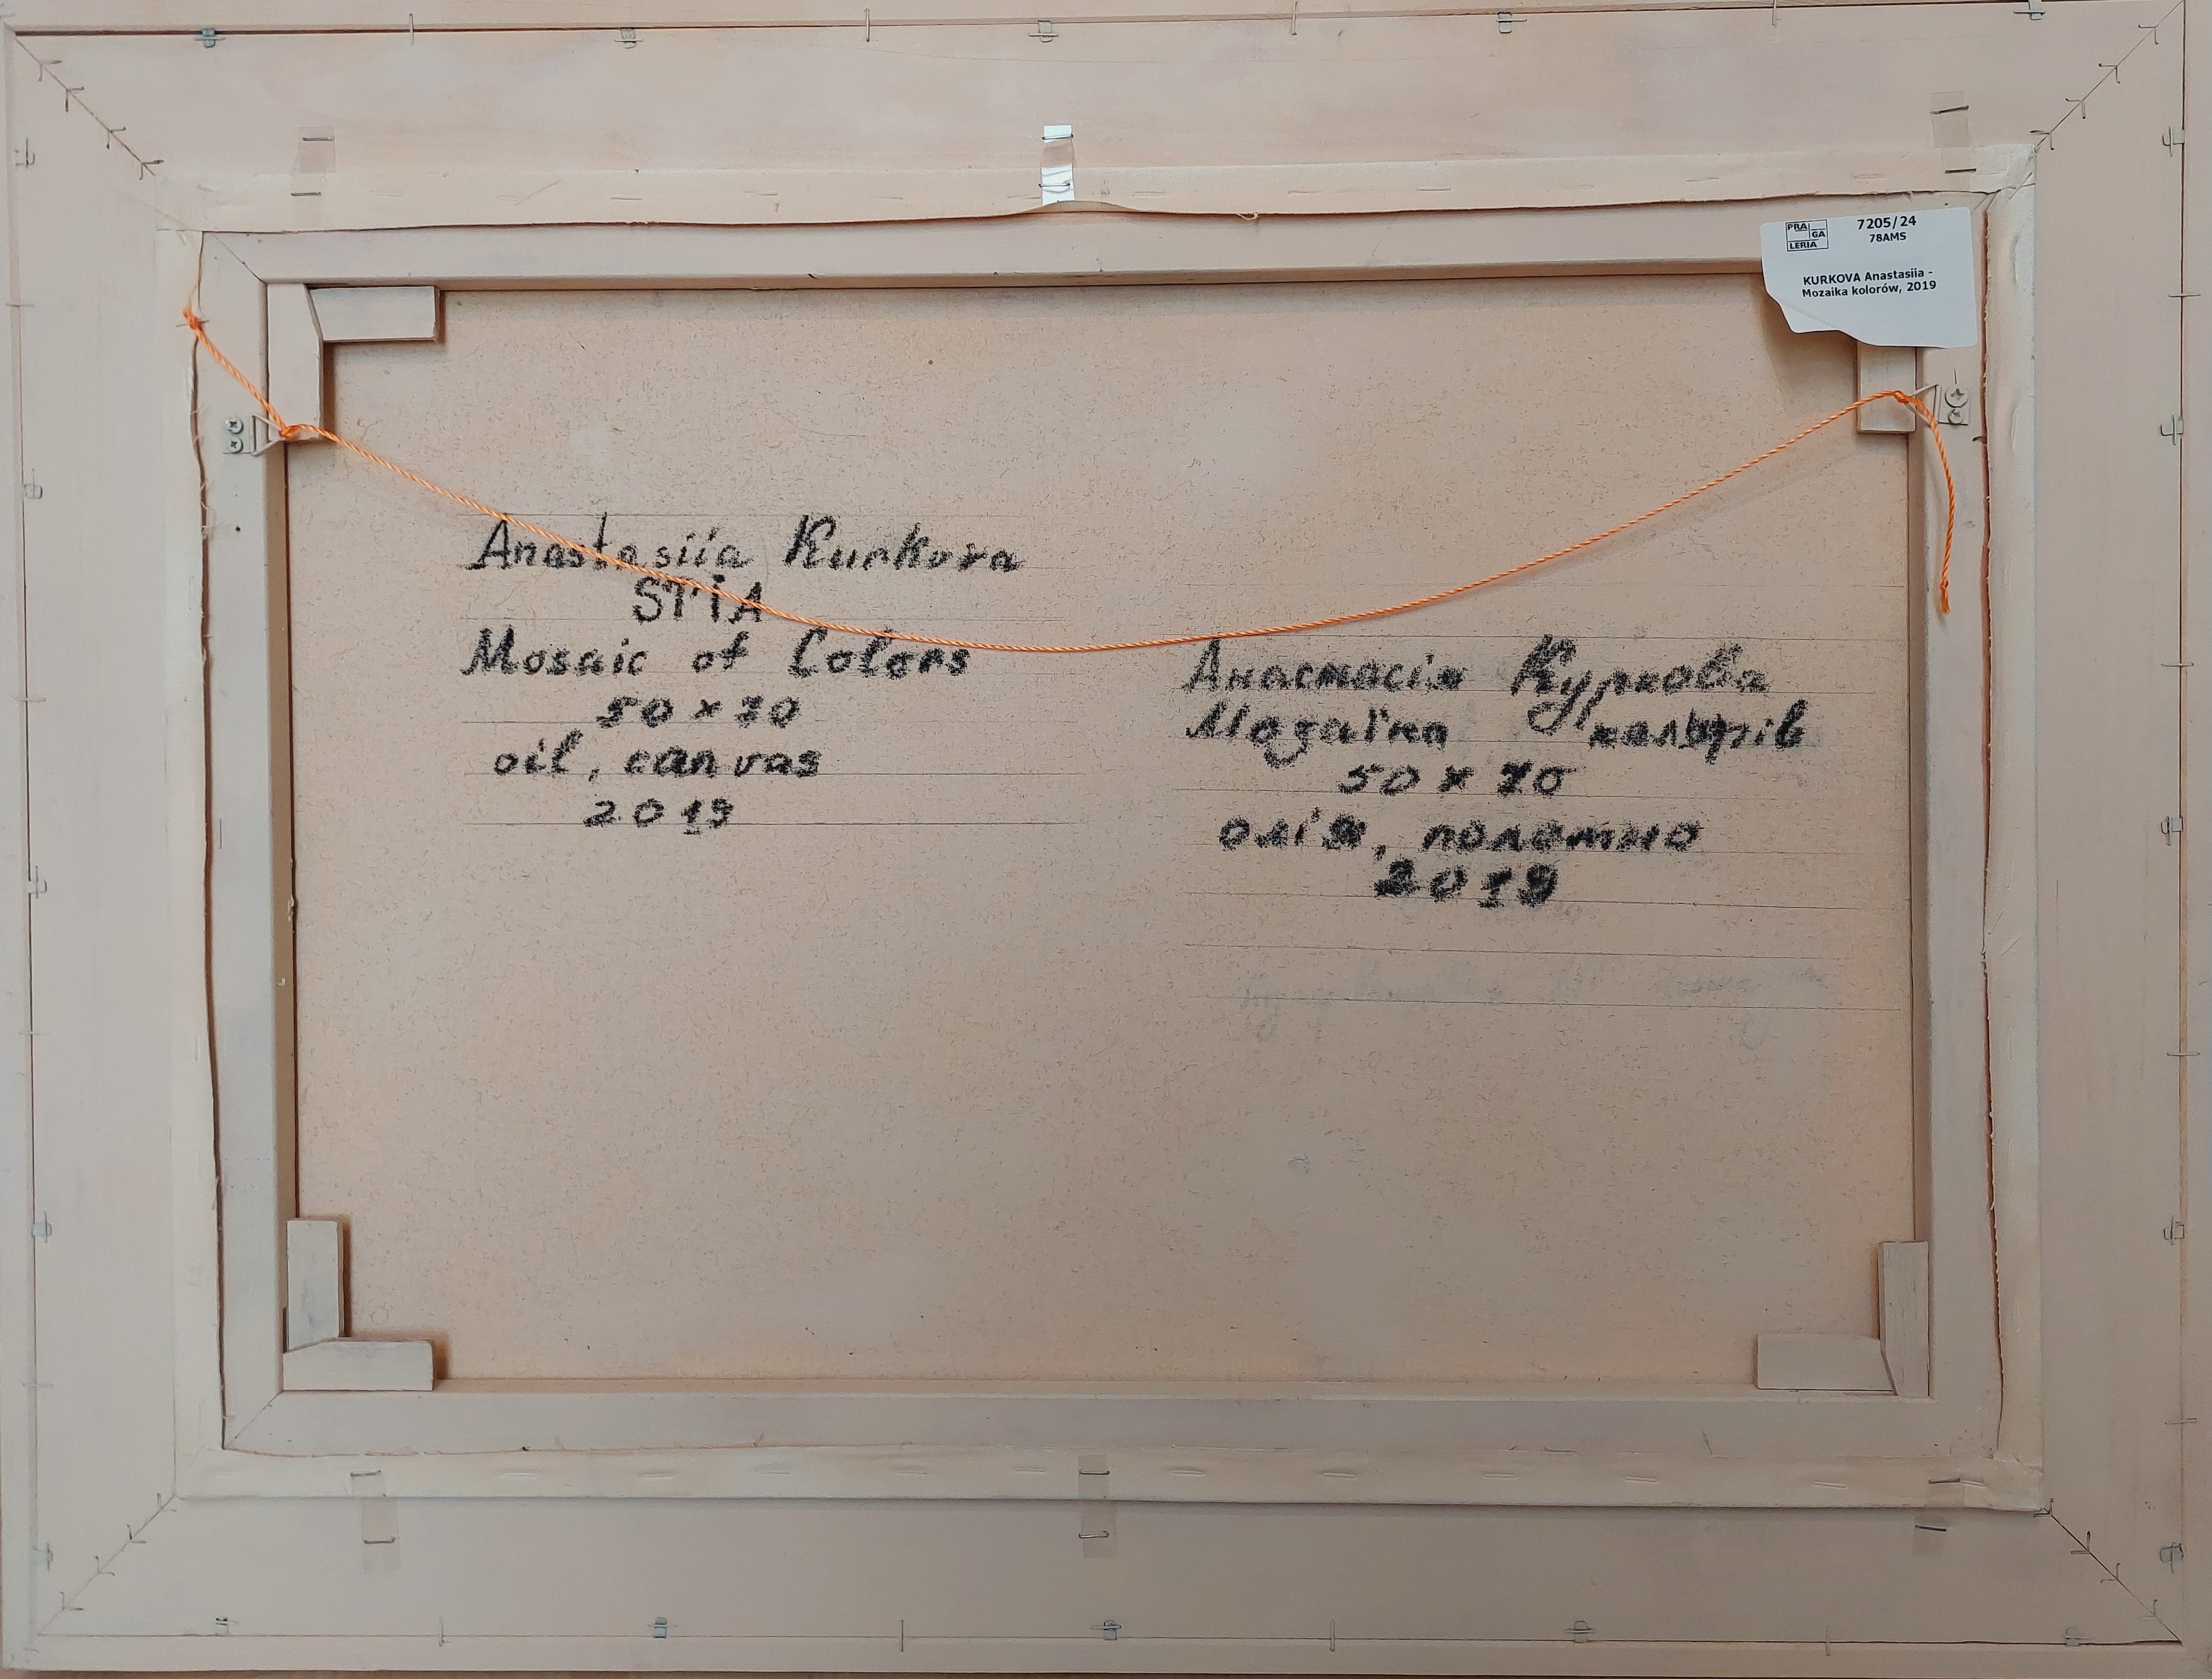 PRA
GA
LERIA
7205/24
78AMS
KURKOVA Anastasiia -
Mozaika kolorów, 2019
Anastasiia Kurkova
STiA
Mosaic of Colors
50 x 70
oil, canvas
2019
Анастасія Куркова
Мозаїка кольорів
50 x 70
олія, полотно
2019